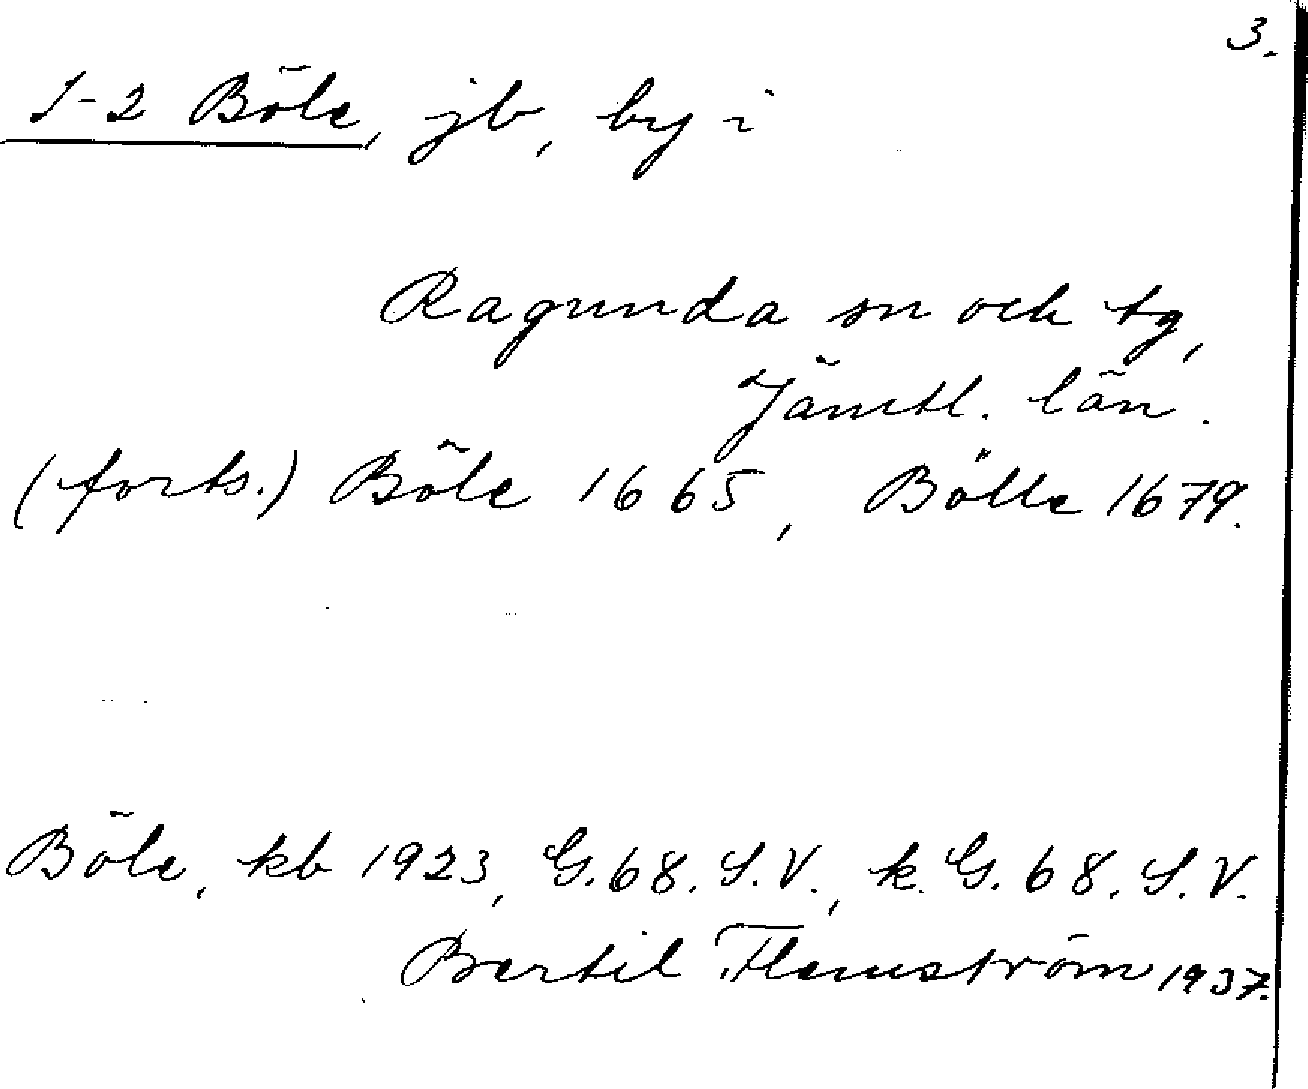 3.
1-2 Böle, jb, by i
Ragunda sn och tg,
Jämtl. län.
(forts.) Böle 1665, Bölle 1679.
Böle, kb 1923, G.68.S.V., k. G.68.S.V.
Bertil Flemström 1937.